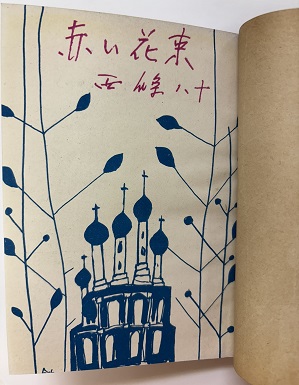 赤い花束
西條八十